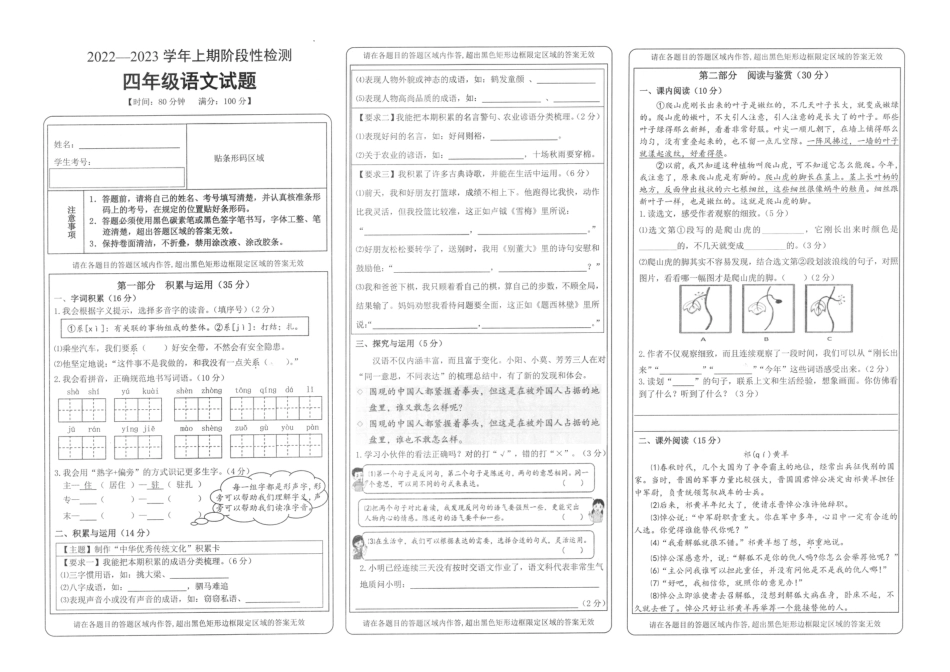 2022—2023 学年上期阶段性检测
四年级语文试题
【时间：80 分钟　满分：100 分】
姓名：
学生考号：
贴条形码区域
注意事项
1．答题前，请将自己的姓名、考号填写清楚，并认真核准条形
码上的考号，在规定的位置贴好条形码。
2．答题必须使用黑色碳素笔或黑色签字笔书写，字体工整、笔
迹清楚，超出答题区域的答案无效。
3．保持卷面清洁，不折叠，禁用涂改液、涂改胶条。
请在各题目的答题区域内作答,超出黑色矩形边框限定区域的答案无效
第一部分　积累与运用（35 分）
一、字词积累（16 分）
1.我会根据字义提示，选择多音字的读音。（填序号）（2 分）
①系[xì]：有关联的事物组成的整体。②系[jì]：打结；扎。
⑴乘坐汽车，我们要系（　）好安全带，不然会有安全隐患。
⑵他坚定地说：“这件事不是我做的，和我没有一点关系（　）。”
2.我会看拼音，正确规范地书写词语。（10 分）
shè shī　yóu kuài　shēn zhōng　tóng qíng　dá lì
jū rán　yíng jiē　máo shēng　zuǒ gù yòu pàn
3.我会用“熟字+偏旁”的方式识记更多生字。（4 分）
主— 住（ 居住 ）— 驻（ 驻扎 ）
专—　（　）—　（　）
末—　（　）—　（　）
每一组字都是形声字,形
旁可以帮助我们理解字义,声
旁可以帮助我们读准字音。
二、积累与运用（14 分）
【主题】制作“中华优秀传统文化”积累卡
【要求一】我能把本期积累的成语分类梳理。（6 分）
⑴三字惯用语，如：挑大梁、
⑵八字成语，如：，驷马难追
⑶表现声音小或没有声音的成语，如：窃窃私语、
请在各题目的答题区域内作答,超出黑色矩形边框限定区域的答案无效
请在各题目的答题区域内作答,超出黑色矩形边框限定区域的答案无效
⑷表现人物外貌或神态的成语，如：鹤发童颜 、
⑸表现人物高尚品质的成语，如：、
【要求二】我能把本期积累的名言警句、农业谚语分类梳理。（2 分）
⑴表现好问的名言，如：好问则裕，。
⑵关于农业的谚语，如：，十场秋雨要穿棉。
【要求三】我积累了许多古典诗歌，并能在生活中运用。（6 分）
⑴前天，我和好朋友打篮球，成绩不相上下。他跑得比我快，动作
比我灵活，但我投篮比较准，这正如卢钺《雪梅》里所说：
“，。”
⑵好朋友松松要转学了，送别时，我用《别董大》里的诗句安慰和
鼓励他：“，？”
⑶我和爸爸下棋，我只顾着看自己的棋，算自己的步数，不顾全局，
结果输了。妈妈劝慰我看待问题要全面，这正如《题西林壁》里所
说：“，。”
三、探究与运用（5 分）
汉语不仅内涵丰富，而且富于变化。小阳、小莫、芳芳三人在对
“同一意思，不同表达”的梳理总结中，有了新的发现和体会。
◇ 围观的中国人都紧握着拳头，但这是在被外国人占据的地
盘里，谁又敢怎么样呢？
◇ 围观的中国人都紧握着拳头，但这是在被外国人占据的地
盘里，谁也不敢怎么样。
1.学习小伙伴的看法正确吗？对的打“✓”，错的打“×”。（3 分）
⑴第一个句子是反问句，第二个句子是陈述句，两句的意思相同。同一
个意思，可以用不同的句式来表达。（　）
⑵把两个句子对比着读，我发现反问句的语气要强烈一些，更能突出
人物内心的情感。陈述句的语气要平和一些。（　）
⑶在生活中，我们可以根据表达的需要，选择合适的句式，灵活运用。
（　）
2.小明已经连续三天没有按时交语文作业了，语文科代表非常生气
地质问小明：
（2 分）
请在各题目的答题区域内作答,超出黑色矩形边框限定区域的答案无效
请在各题目的答题区域内作答,超出黑色矩形边框限定区域的答案无效
第二部分　阅读与鉴赏（30 分）
一、课内阅读（10 分）
①爬山虎刚长出来的叶子是嫩红的，不几天叶子长大，就变成嫩绿
的。爬山虎的嫩叶，不大引人注意，引人注意的是长大了的叶子。那些
叶子绿得那么新鲜，看着非常舒服。叶尖一顺儿朝下，在墙上铺得那么
均匀，没有重叠起来的，也不留一点儿空隙。一阵风拂过，一墙的叶子
就漾起波纹，好看得很。
②以前，我只知道这种植物叫爬山虎，可不知道它怎么能爬。今年，
我注意了，原来爬山虎是有脚的。爬山虎的脚长在茎上。茎上长叶柄的
地方，反面伸出枝状的六七根细丝，这些细丝像蜗牛的触角。细丝跟
新叶子一样，也是嫩红的。这就是爬山虎的脚。
1.读选文，感受作者观察的细致。（5 分）
⑴选文第①段写的是爬山虎的，它刚长出来时颜色是
的，不几天就变成的。（3 分）
⑵爬山虎的脚其实不容易发现，结合选文第②段划波浪线的句子，对照
图片，看看哪一幅图才是爬山虎的脚。（　）（2 分）
A　B　C
2.作者不仅观察细致，而且连续观察了一段时间，我们可以从“刚长出
来”“”“”“今年”这些词语感受出来。（2 分）
3.读划“＿＿”的句子，联系上文和生活经验，想象画面。你仿佛看
到了什么？听到了什么？（3 分）
二、课外阅读（15 分）
祁(qí)黄羊
⑴春秋时代，几个大国为了争夺霸主的地位，经常出兵征伐别的国
家。当时，晋国的军事力量比较强大，晋国国君悼公决定由祁黄羊担任
中军尉，负责统领驾驭战车的士兵。
⑵后来，祁黄羊年纪大了，便请求晋悼公准许他辞职。
⑶悼公说：“中军尉职责重大。你在军中多年，心目中一定有合适的
人选。你觉得谁能替代你呢？”
⑷“我看解狐就很不错。”祁黄羊想了想，郑重地说。
⑸悼公深感意外，说：“解狐不是你的仇人吗?你怎么会举荐他呢？”
⑹“主公问我谁可以担此重任，并没有问他是不是我的仇人哪！”
⑺“好吧，我相信你，就照你的意见办！”
⑻悼公立即派使者去召解狐，没想到解狐大病在身，卧床不起，不
久就去世了。悼公只好让祁黄羊再举荐一个能接替他的人。
请在各题目的答题区域内作答,超出黑色矩形边框限定区域的答案无效